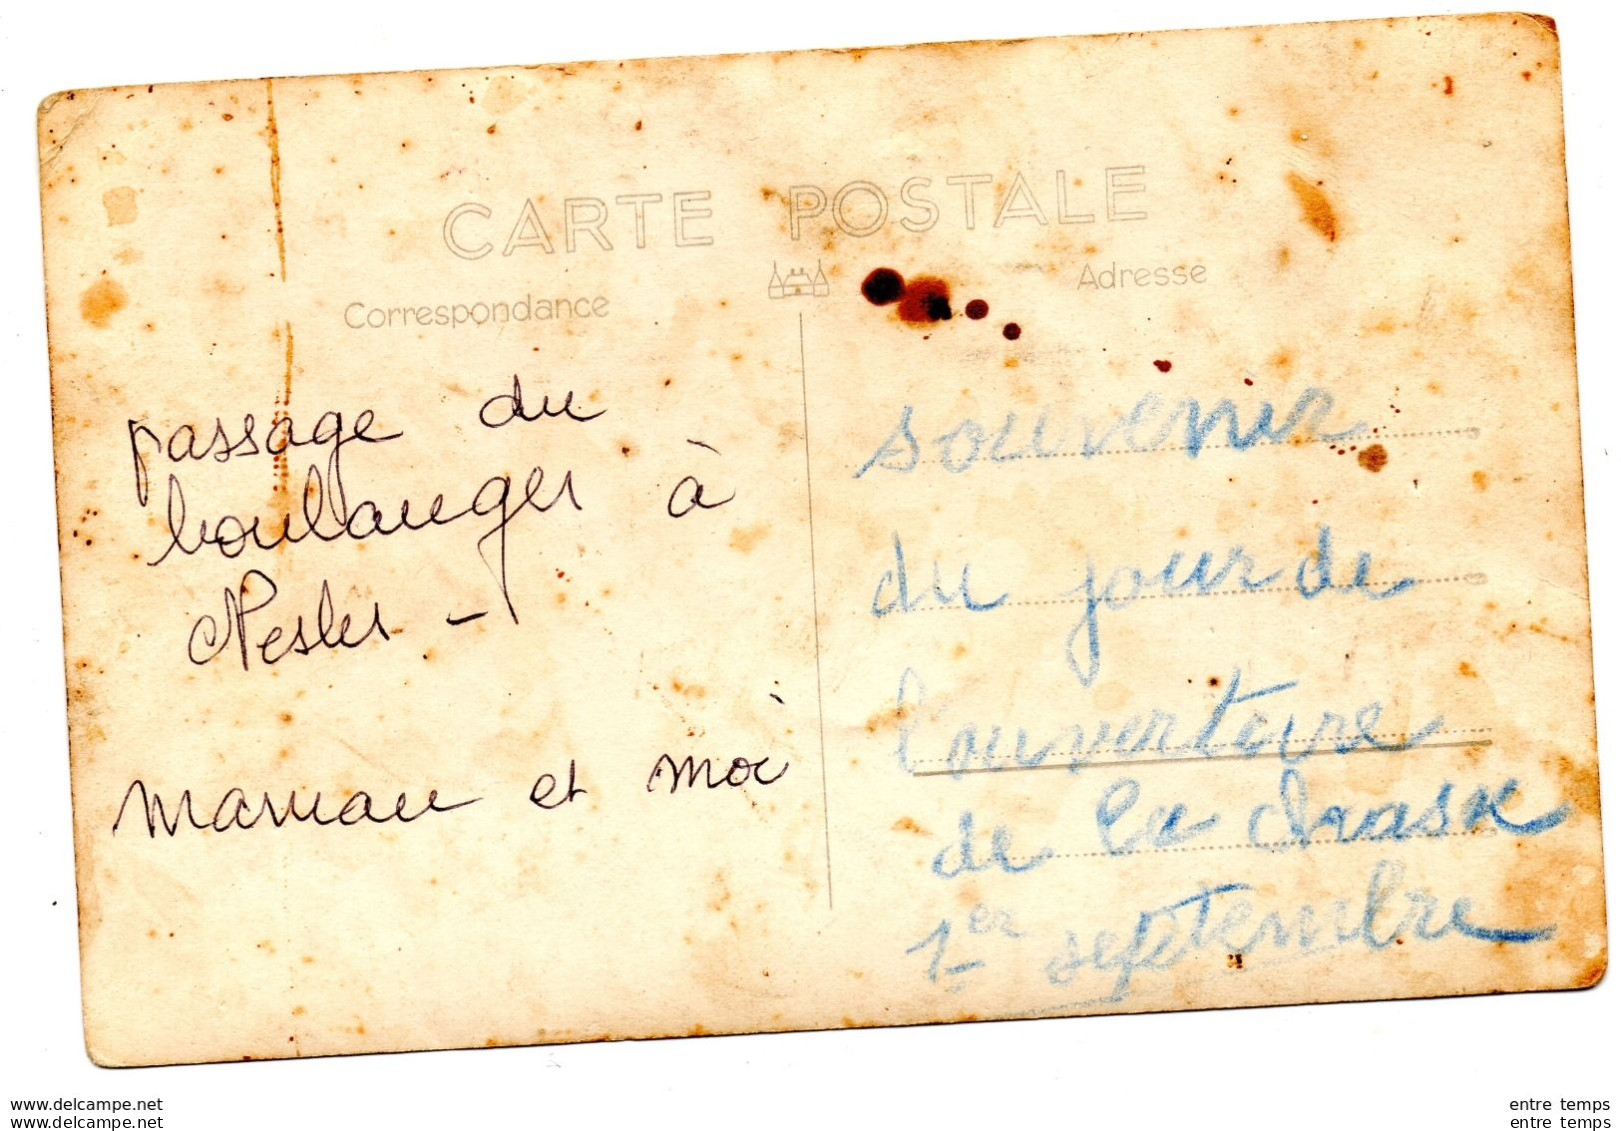 CARTE POSTALE
Correspondance
Adresse
passage du
boulanger à
Nesles -
maman et moi
souvenir
du jour de
l'ouverture
de la chasse
1er septembre
www.delcampe.net
www.delcampe.net
entre temps
entre temps